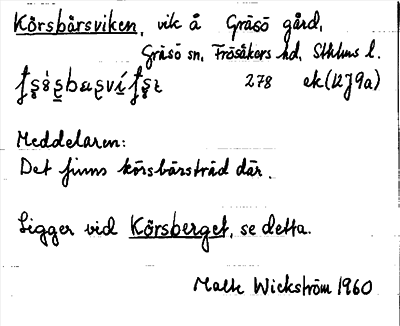 Körsbärsviken, vik å Gräsö gård,
Gräsö sn, Frösåkers hd, Sthlms l.
278 ek (12J9a)
Meddelaren:
Det finns körsbärsträd där.
Ligger vid Körsberget, se detta.
Malte Wickström 1960